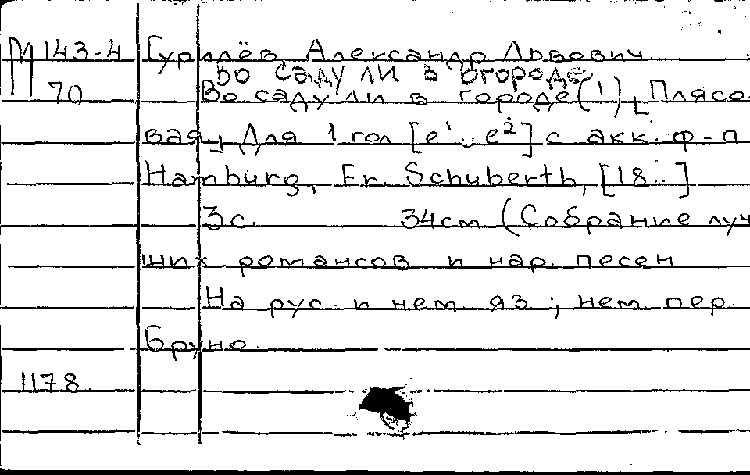 М 143-4 Гурилёв Александр Львович
Во саду ли в огороде
70 Во саду ли в городе (!) [Плясо-
вая] Для 1 гол [e¹.. e²] с акк. ф-п
Hamburg, Fr. Schuberth, [18..]
3с. 34см (Собрание луч-
ших романсов и нар. песен
На рус. и нем. яз.; нем. пер.
Бруно.
1178.